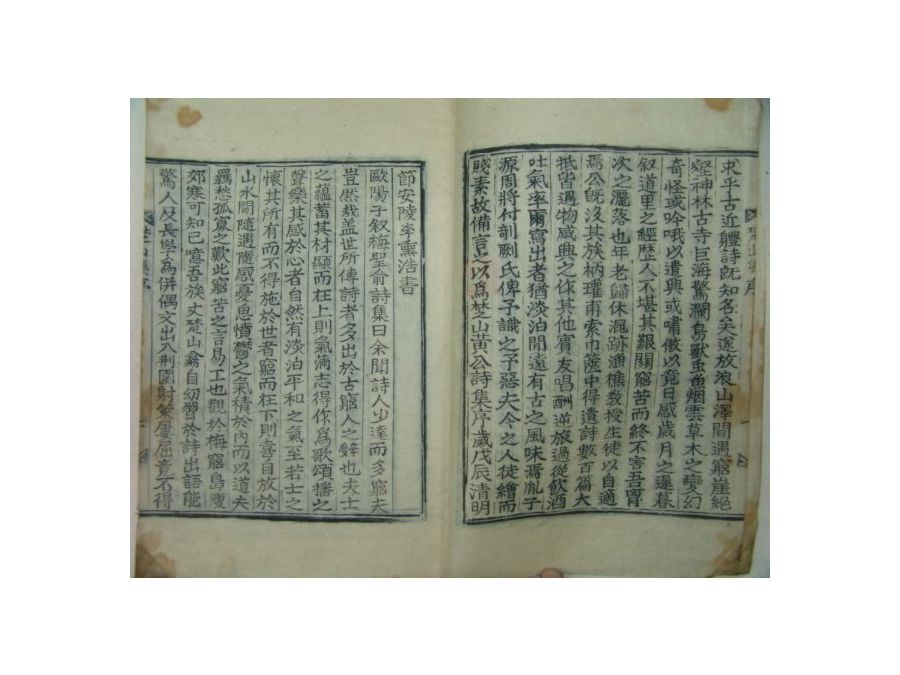 求乎古近軆詩旣知名矣遂放浪山澤間遇窮崖絶
壑神林古寺巨海驚瀾鳥獸虫魚烟雲草木之變幻
奇怪或吟哦以遣興或嘯傲以竟日感歲月之遲暮
叙道里之經歷人不堪其艱關窮苦而終不害吾胷
次之灑落也年老歸休混跡漁樵敎授生徒以自適
焉公旣沒其族柄瓘甫索巾篋中得遺詩數百篇大
抵皆遇物感興之作其他賓友唱酬逆旅過從飮酒
吐氣率爾寫出者猶淡泊閒遠有古之風味焉胤子
源周將付剞劂氏俾子識之予惡夫今之人徒繪而
賤素故備言之以爲楚山黃公詩集序歲戊辰淸明
節安陵李熏浩書
歐陽子叙梅聖俞詩集曰余聞詩人少達而多窮夫
豈然哉盖世所傳詩者多出於古窮人之辭也夫士
之蘊蓄其材顯而在上則氣滿志得作爲歌頌播之
聲樂其感於心者自然有淡泊平和之氣至若士之
懷其所有而不得施於世者窮而在下則喜自放於
山水間隨遇隨感憂思憤鬱之氣積於內而以道夫
羈愁孤寡之歎此窮苦之言易工也觀於梅窮島瘦
郊寒可知已噫吾族丈楚山翁自幼習於詩出語能
驚人及長學爲倂偶文出入荆圍射策屢屈竟不得
楚山集序